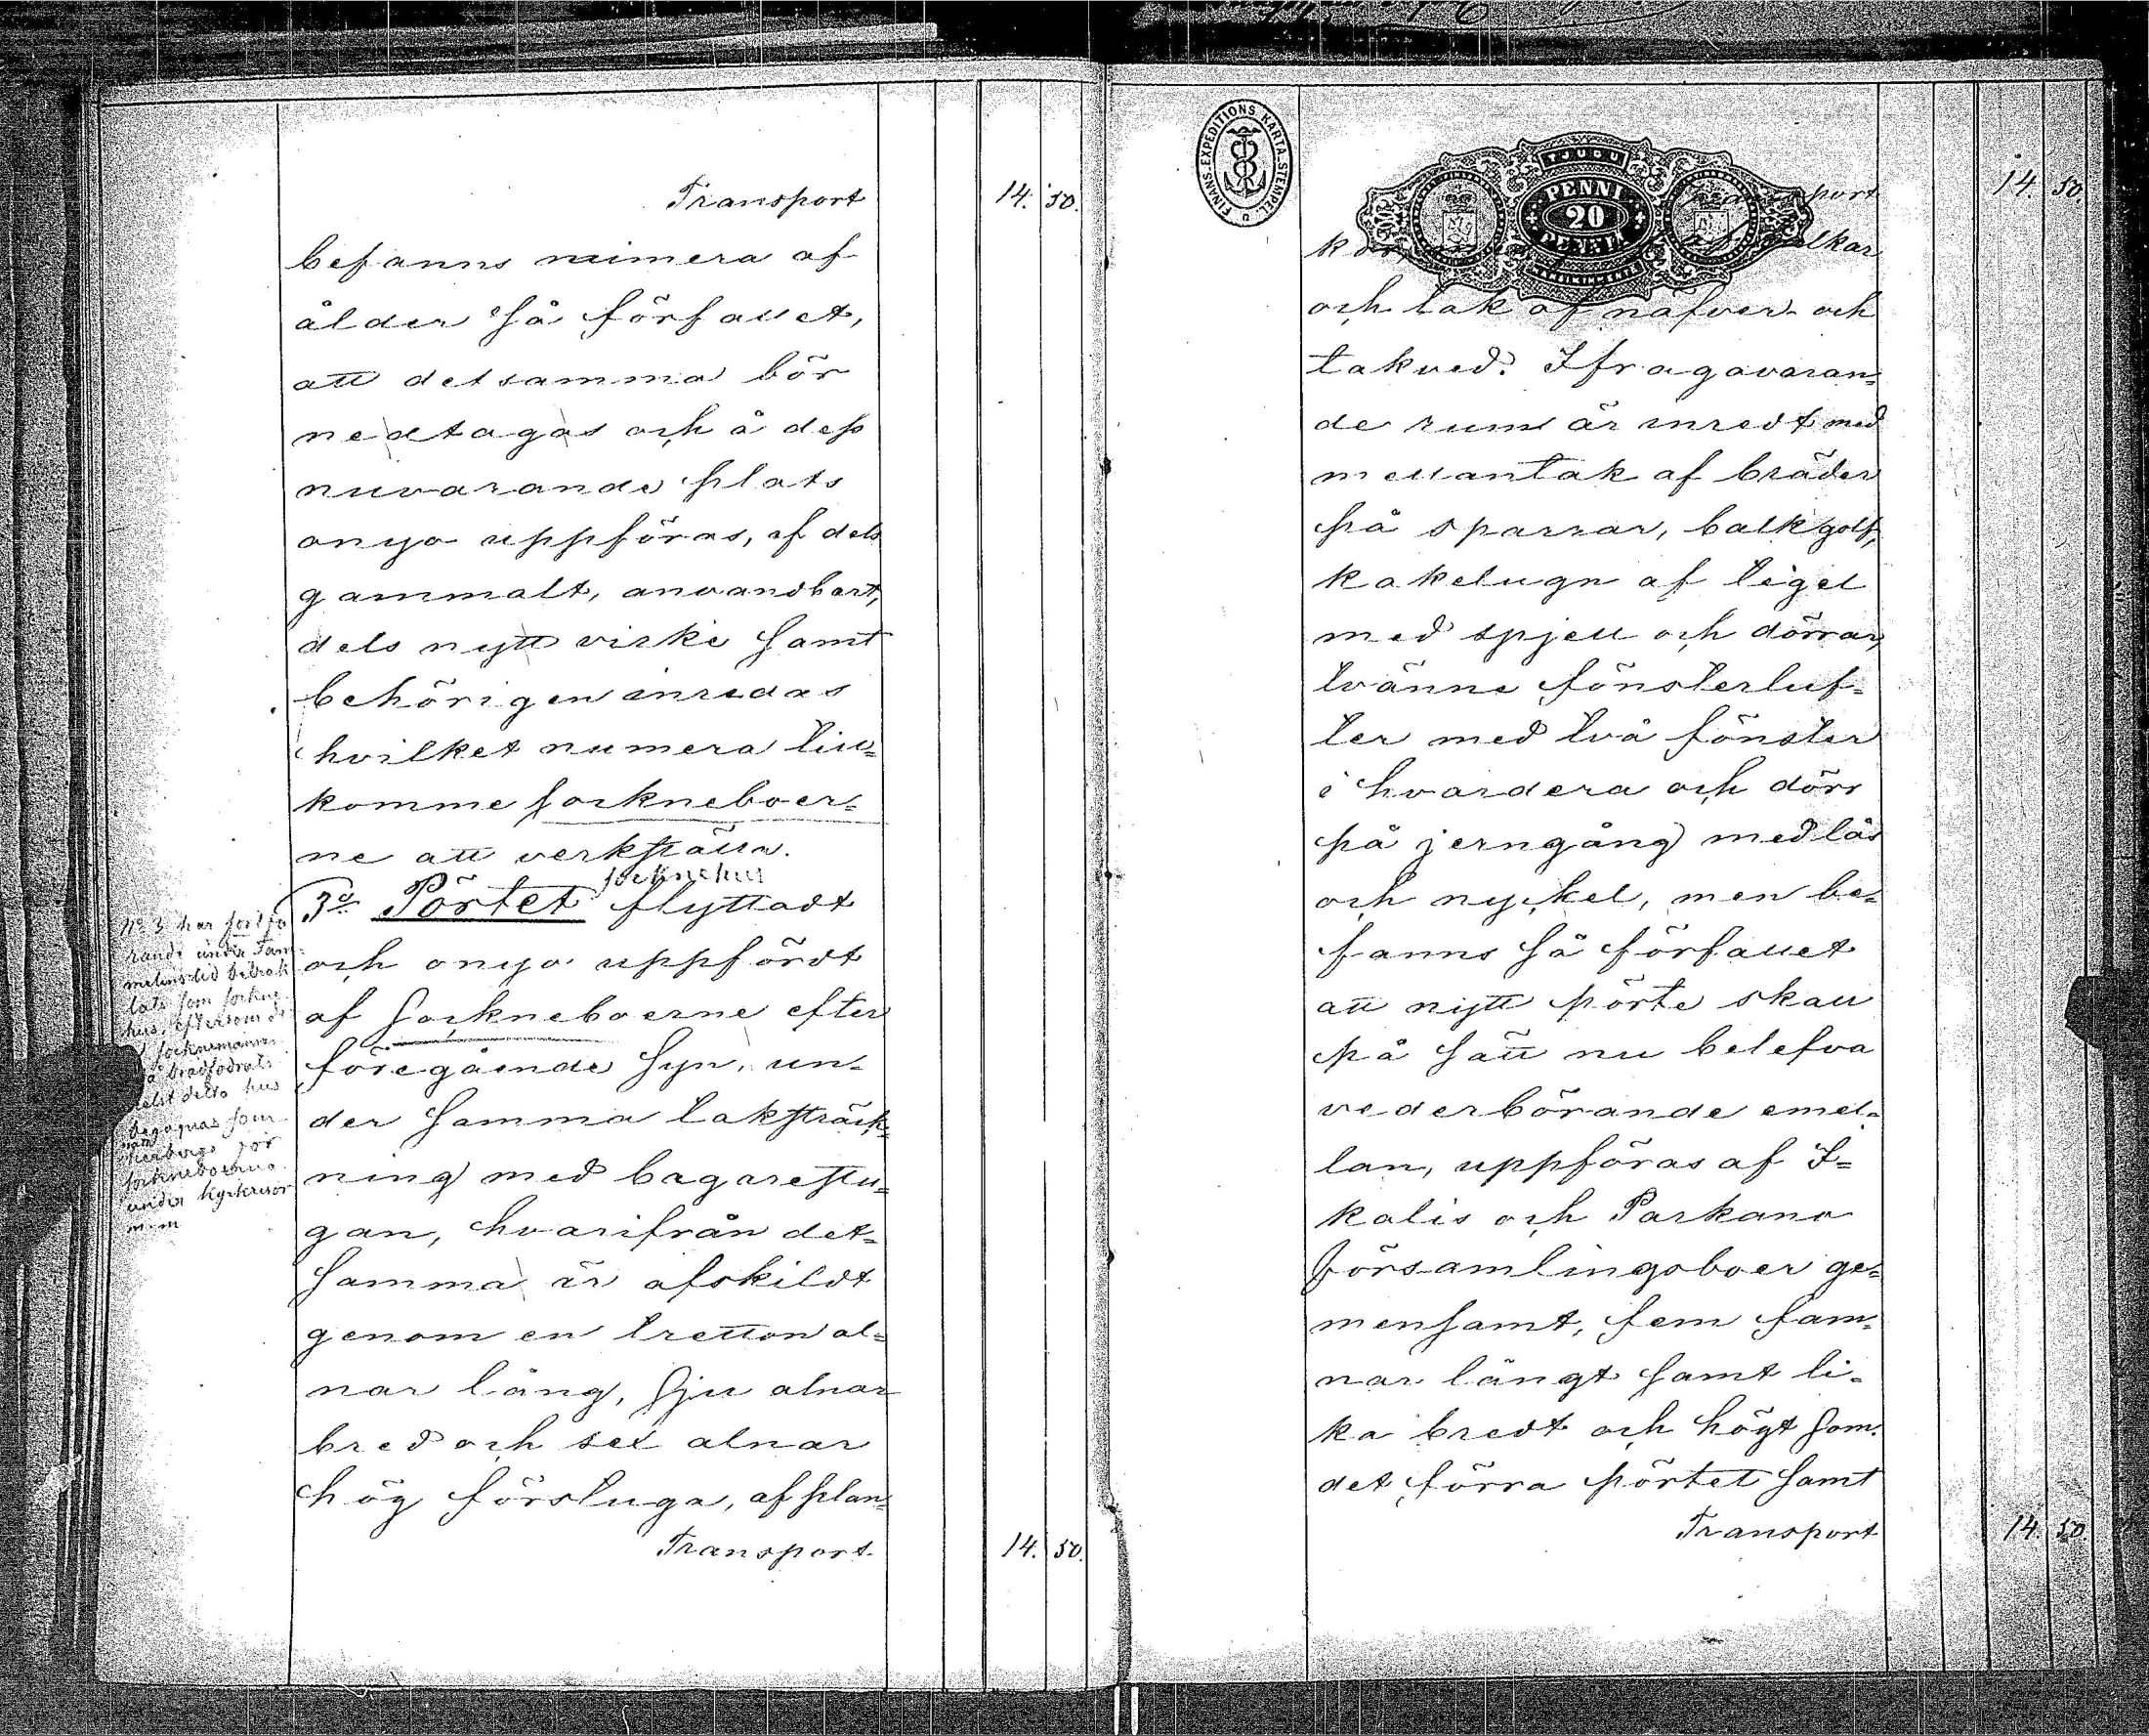 Transport 14. 50.
befanns numera af
ålder så förfallet,
att detsamma bör
nedtagas och å dess
nuvarande plats
ånyo uppföras, af dels
gammalt, användbart,
dels nytt virke samt
behörigen inredas
hvilket numera till=
komme sockneboer=
ne att verkställa.
socknehus
3o Pörtet flyttadt
och ånyo uppfördt
af Sockneboerne efter
föregående syn, un=
der samma taksträck=
ning med bagarestu=
gan, hvarifrån det=
samma är afskildt
genom en tretton al=
nar lång, sju alnar
bred och sex alnar
hög förstuga, af plan=
Transport 14. 50.
No 3 har fortfa
rande under Tam=
melins tid betrak
tats som sockne
hus, eftersom
socknemännen
brädfodrat
detta hus
begagnas som
natt
herberge för
sockneboerna
under kyrkresor
m.m
FINANS EXPEDITIONS KARTA. STEMPEL.
TJUGU
PENNI
20
port 14. 50.
och tak af näfver och
takved. Ifrågavaran=
de rum är inredt med
mellantak af bräder
på sparrar, balkgolf,
kakelugn af tegel
med spjell och dörrar,
tvänne fönsterluf=
ter med två fönster
i hvardera och dörr
på jerngång med lås
och nyckel, men be=
fanns så förfallet
att nytt pörte skall
på sätt nu belefva
vederbörande emel=
lan, uppföras af I=
kalis och Parkano
församlingsboer ge=
mensamt, fem fam=
nar långt samt li=
ka bredt och högt som
det förra pörtet samt
Transport 14. 50.